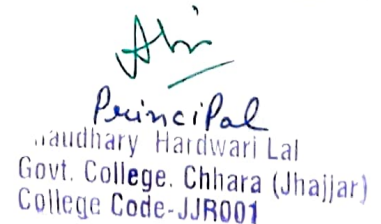 Principal
Hardwari Lal
Govt. College. Chhara (Jhajjar)
College Code-JJR001